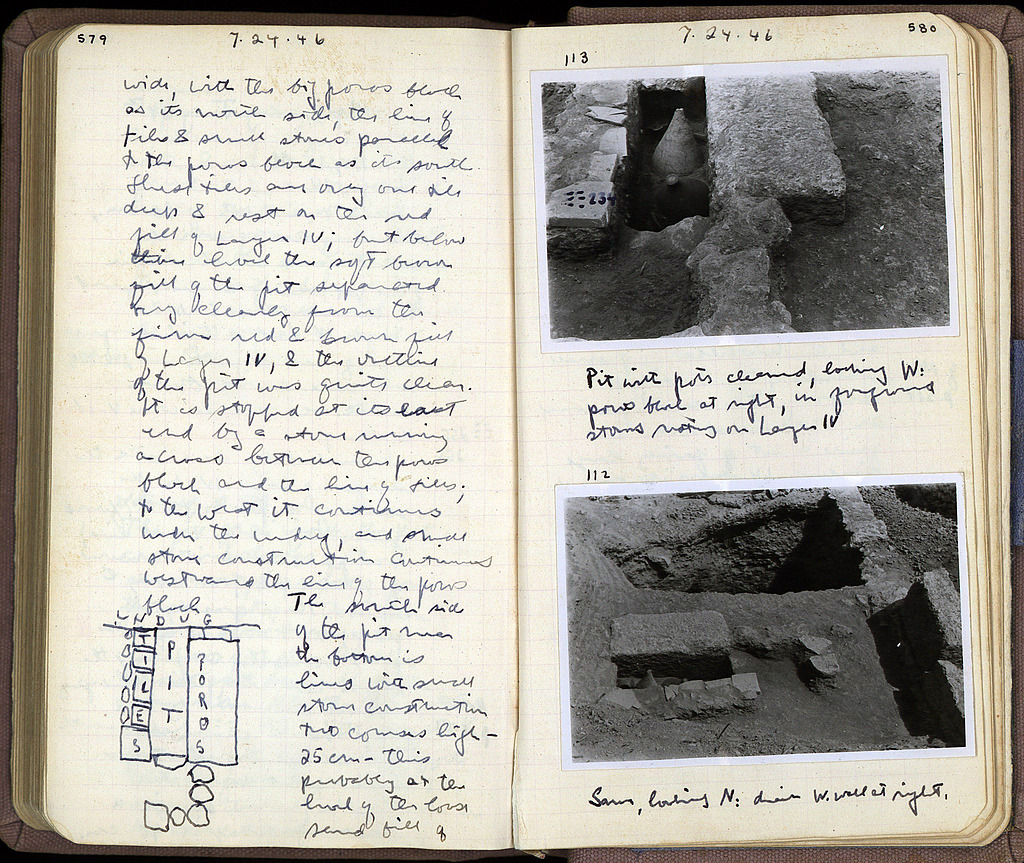 579
7.24.46
wide, with the big poros block
as its north side, the line of
tiles & small stones parallel
to the poros block as its south.
These tiles are only one tile
deep & rest on the red
fill of Layer IV; but below
this level the soft brown
fill of the pit separated
very cleanly from the
firm red & brown fill
of Layer IV, & the outline
of the pit was quite clear.
It is stopped at its east
end by a stone running
across between the poros
block and the line of tiles;
to the west it continues
under the undug, and small
stone construction continues
westward the line of the poros
block. The south side
of the pit near
the bottom is
lined with small
stone construction
two courses high –
25 cm – this
probably at the
level of the loose
sand fill of
UNDUG
TILES
PIT
POROS
7.24.46
580
113
234
Pit with pots cleaned, looking W:
poros block at right, in foreground
stones resting on Layer IV
112
Same, looking N: drain W. wall at right.